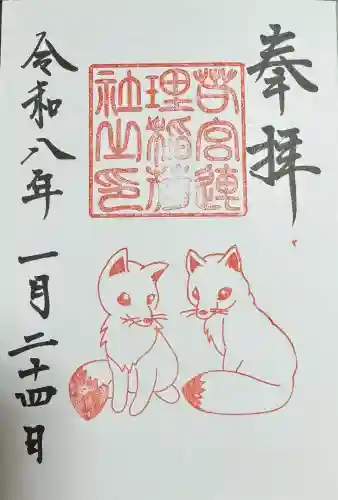 奉拝
苔宮連
理稲荷
社之印
令和八年 一月二十四日